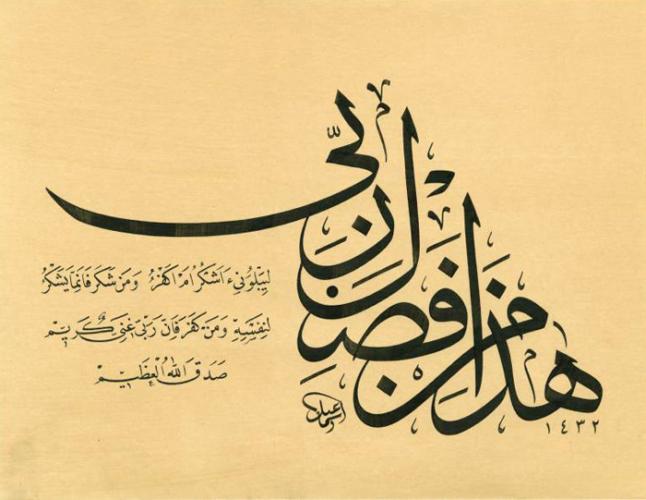 هذا من فضل ربي
ليبلوني ءاشكر ام اكفر ومن شكر فانما يشكر
لنفسه ومن كفر فان ربي غني كريم
صدق الله العظيم
١٤٣٢